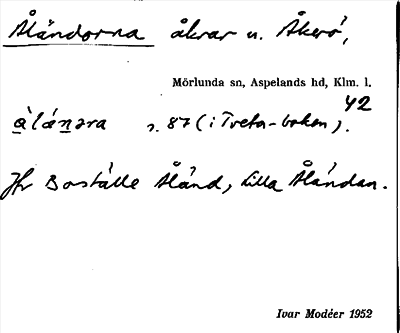 Åländorna åkrar u. Åkerö,
Mörlunda sn, Aspelands hd, Klm. l.
42
àlánәra s. 87 (i Tveta-boken).
Jfr Boställe Åländ, Lilla Åländan.
Ivar Modéer 1952